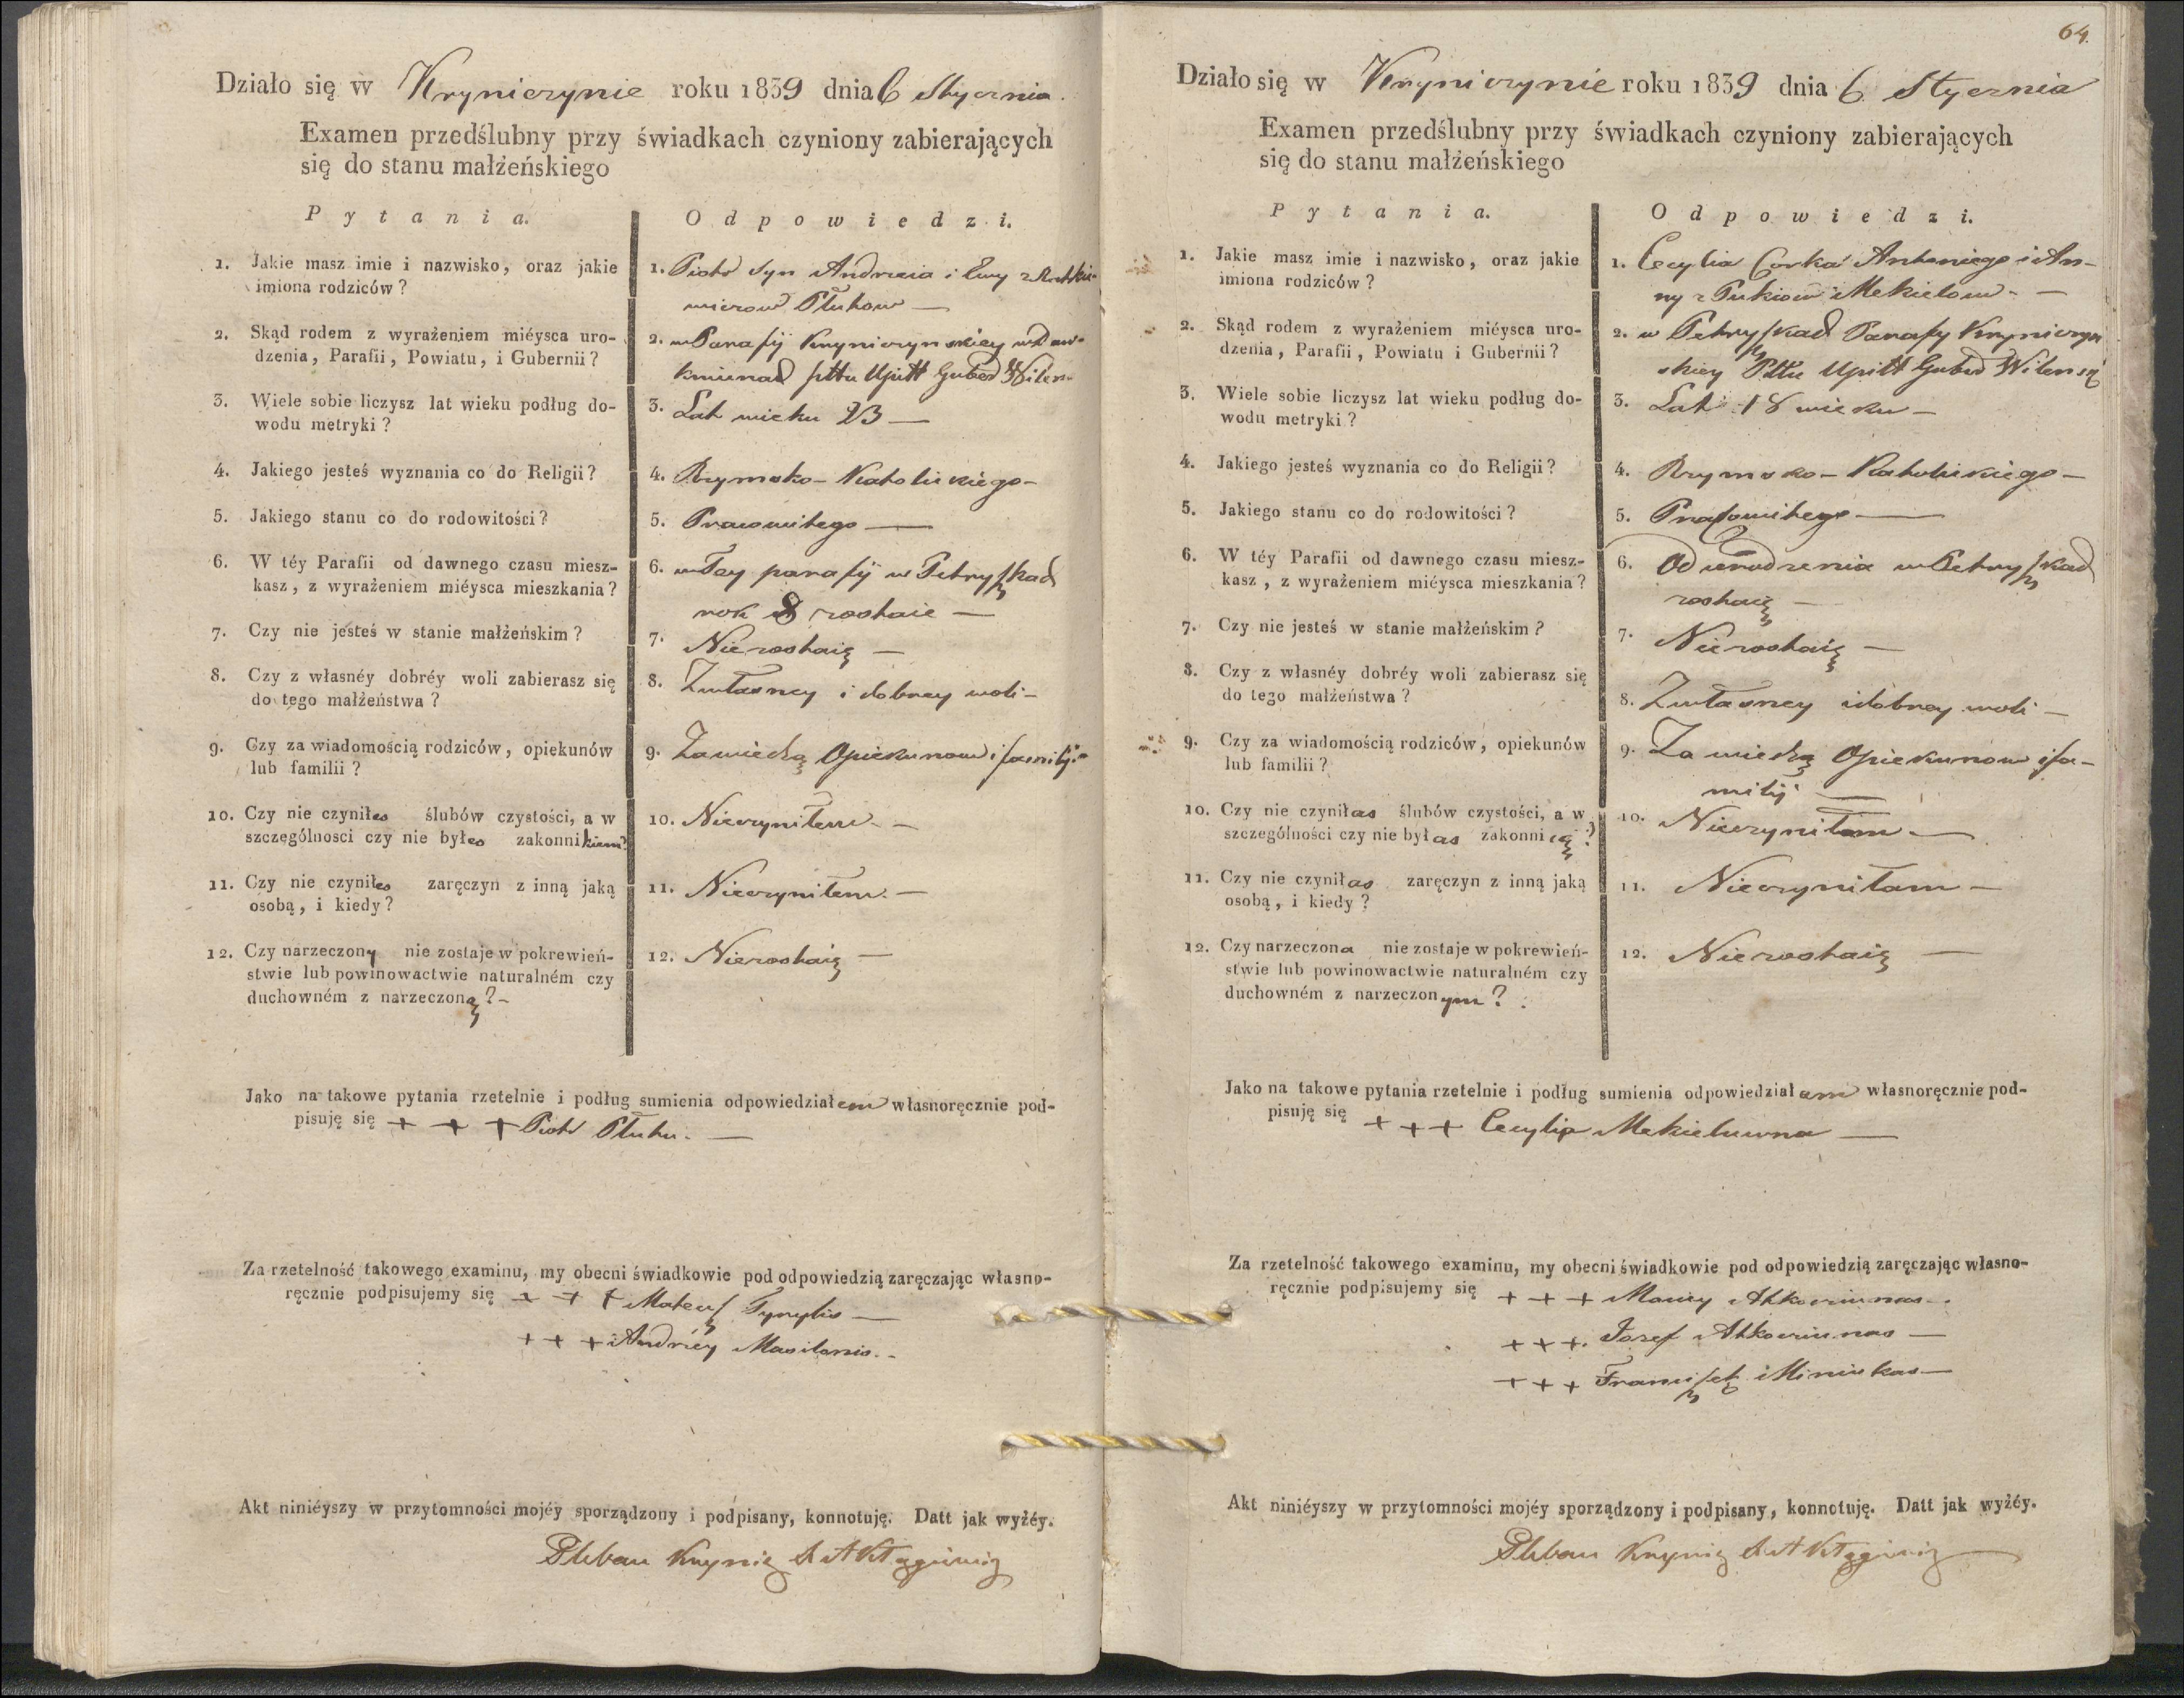 Działo się w Kryniczynie roku 1839 dnia 6 Stycznia.
Examen przedślubny przy świadkach czyniony zabierających
się do stanu małżeńskiego
Pytania.
Odpowiedzi.
1. Jakie masz imie i nazwisko, oraz jakie
imiona rodziców?
1. Piotr Syn Andrzeia i Ewy z
Płuhow —
2. Skąd rodem z wyrażeniem miéysca uro-
dzenia, Parafii, Powiatu, i Gubernii?
2. w Parafij Kryniczynskiey w
Pttu Upitt Guber Wilen-
3. Wiele sobie liczysz lat wieku podług do-
wodu metryki?
3. Lat wieku 23 —
4. Jakiego jesteś wyznania co do Religii?
4. Rzymsko-Katolickiego-
5. Jakiego stanu co do rodowitości?
5. Pracowitego —
6. W téy Parafii od dawnego czasu miesz-
kasz, z wyrażeniem miéysca mieszkania?
6. w Tey parafij w Petryszkach
rok 8 zostaie —
7. Czy nie jesteś w stanie małżeńskim?
7. Niezostaię —
8. Czy z własnéy dobréy woli zabierasz się
do tego małżeństwa?
8. Zwłasney i dobrey woli-
9. Czy za wiadomością rodziców, opiekunów
lub familii?
9. Zawiedzą Opiekunow i familij-
10. Czy nie czyniłes ślubów czystości, a w
szczególnosci czy nie byłes zakonnikiem?
10. Nieczyniłem —
11. Czy nie czyniłes zaręczyn z inną jaką
osobą, i kiedy?
11. Nieczyniłem —
12. Czy narzeczony nie zostaje w pokrewień-
stwie lub powinowactwie naturalném czy
duchowném z narzeczoną?-
12. Niezostaię —
Jako na takowe pytania rzetelnie i podług sumienia odpowiedziałem własnoręcznie pod-
pisuję się + + + Piotr Płuhu. —
Za rzetelność takowego examinu, my obecni świadkowie pod odpowiedzią zaręczając własno-
ręcznie podpisujemy się + + + Mateusz —
+ + + Andrzéy Masilonis.-
Akt niniéyszy w przytomności mojéy sporządzony i podpisany, konnotuję. Datt jak wyżéy.
Pleban Krynic
64.
Działo się w Kryniczynie roku 1839 dnia 6. Stycznia
Examen przedślubny przy świadkach czyniony zabierających
się do stanu małżeńskiego
Pytania.
Odpowiedzi.
1. Jakie masz imie i nazwisko, oraz jakie
imiona rodziców?
1. Cecylia Corka Antoniego i An-
ny z Pukiow Mekielow- —
2. Skąd rodem z wyrażeniem miéysca uro-
dzenia, Parafii, Powiatu i Gubernii?
2. w Petryszkach Parafy Kryniczyn
skiey Pttu Upitt Guber Wilensk
3. Wiele sobie liczysz lat wieku podług do-
wodu metryki?
3. Lat 18 wieku —
4. Jakiego jesteś wyznania co do Religii?
4. Rzymsko-Katolickiego —
5. Jakiego stanu co do rodowitości?
5. Pracowitego —
6. W téy Parafii od dawnego czasu miesz-
kasz, z wyrażeniem miéysca mieszkania?
6. Od urodzenia w Petryszkach
zostaię —
7. Czy nie jesteś w stanie małżeńskim?
7. Niezostaię —
8. Czy z własnéy dobréy woli zabierasz się
do tego małżeństwa?
8. Zwłasney i dobrey woli —
9. Czy za wiadomością rodziców, opiekunów
lub familii?
9. Za wiedzą Opiekunow i fa-
milij —
10. Czy nie czyniłas ślubów czystości, a w
szczególności czy nie byłas zakonnicą?
10. Nieczyniłam —
11. Czy nie czyniłas zaręczyn z inną jaką
osobą, i kiedy?
11. Nieczyniłam —
12. Czy narzeczona nie zostaje w pokrewień-
stwie lub powinowactwie naturalném czy
duchowném z narzeczonym?
12. Niezostaię —
Jako na takowe pytania rzetelnie i podług sumienia odpowiedziałam własnoręcznie pod-
pisuję się + + + Cecylia Mekieluwna —
Za rzetelność takowego examinu, my obecni świadkowie pod odpowiedzią zaręczając własno-
ręcznie podpisujemy się + + + Maciey Atkocziunas-
+ + + Jozef Atkocziunas —
+ + + Franciszek Miniskas —
Akt niniéyszy w przytomności mojéy sporządzony i podpisany, konnotuję. Datt jak wyżéy.
Pleban Krynic